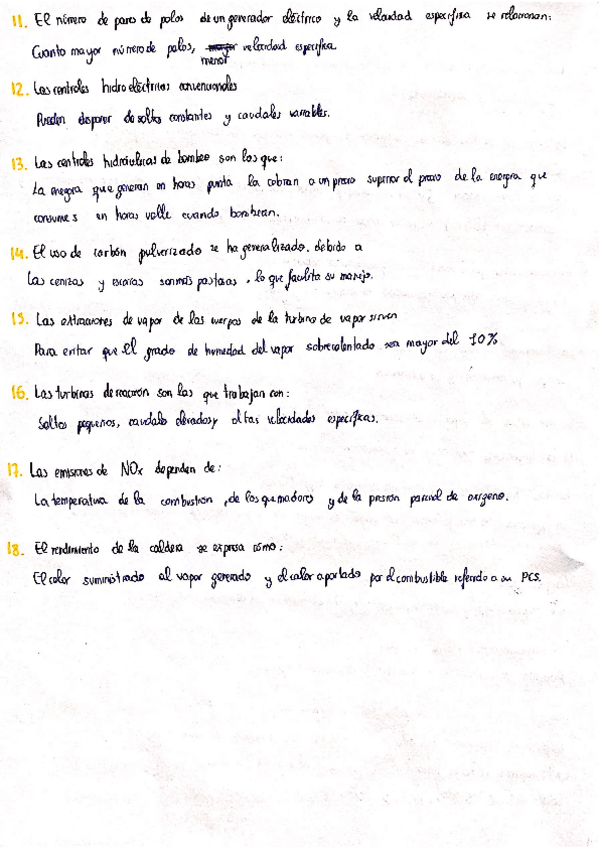 11. El número de pares de polos de un generador eléctrico y la velocidad específica se relacionan:
Cuanto mayor número de palos, mayor velocidad específica
menor
12. Las centrales hidroeléctricas convencionales
Pueden disponer de saltos constantes y caudales variables.
13. Las centrales hidráulicas de bombeo son las que:
La energía que generan en horas punta la cobran a un precio superior al precio de la energía que
consumes en horas valle cuando bombean.
14. El uso de carbón pulverizado se ha generalizado, debido a
Las cenizas y escorias son más pastosas, lo que facilita su manejo.
15. Las extracciones de vapor de los cuerpos de la turbina de vapor sirven
Para evitar que el grado de humedad del vapor sobrecalentado sea mayor del 10%
16. Las turbinas de reacción son las que trabajan con:
Saltos pequeños, caudales elevados y altas velocidades específicas.
17. Las emisiones de NOx dependen de:
La temperatura de la combustión, de los quemadores y de la presión parcial de oxígeno.
18. El rendimiento de la caldera se expresa como:
El calor suministrado al vapor generado y el calor aportado por el combustible referido a su PCS.